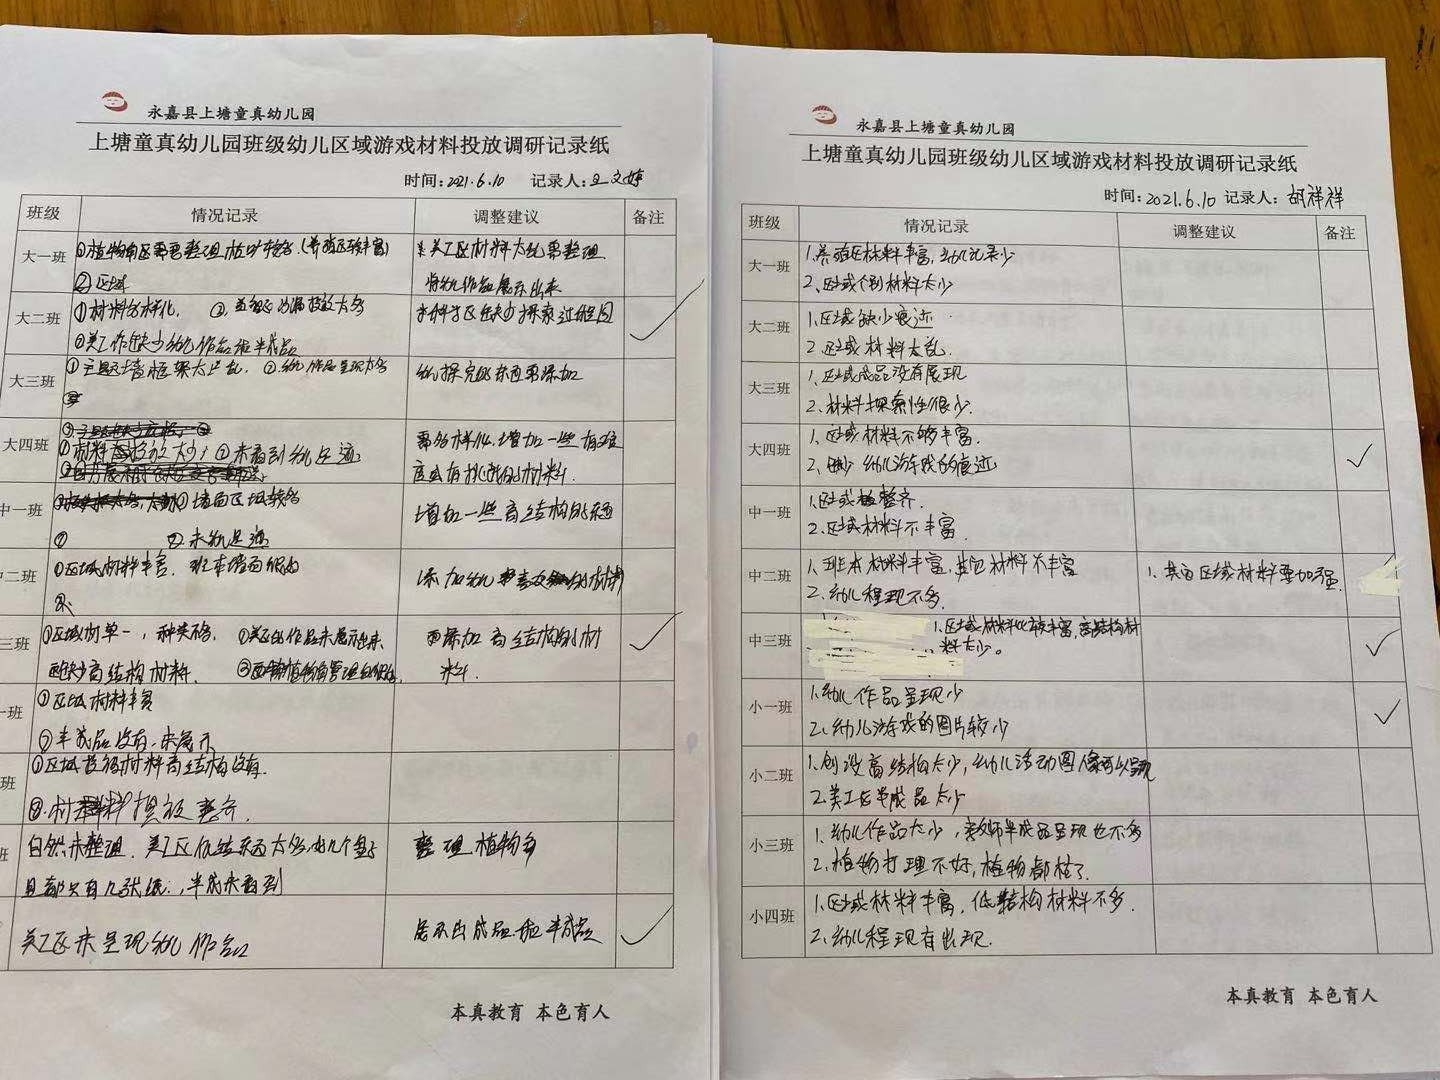 永嘉县上塘童真幼儿园
上塘童真幼儿园班级幼儿区域游戏材料投放调研记录纸
时间: 2021.6.10 记录人: 王文婷
班级 情况记录 调整建议 备注
大一班 ①植物角区需要整理
②区域
美工区材料太乱需整理
将幼儿作品展示出来
大二班 ①材料多样化.
③美工作缺少幼儿作品和半成品
科学区缺少探索过程图 ✓
大三班 ①主题墙框架太单乱. ②幼儿作品呈现太少
幼儿探究的东西要添加
大四班 ①材料投放太少; ②未看到幼儿足迹
需多样化.增加一些有难
度或有挑战的材料.
中一班 ①墙面区域较多
② ②未幼儿足迹
增加一些高结构的东西
中二班 ①区域材料丰富. 班本墙面很好
②
添加幼儿
三班 ①区域材单一, 种类不多. ②美工区的作品未展示出来.
缺少高结构材料.
添加高结构的材
料. ✓
一班 ①区域材料丰富
②半成品没有.未展示
班 ①区域投放材料高结构没有.
②.材料摆放整齐.
班 自然未整理.
且都只有几张纸., 半成未看到
整理植物角
美工区未呈现幼儿作品
展示出成品和半成品 ✓
本真教育 本色育人
永嘉县上塘童真幼儿园
上塘童真幼儿园班级幼儿区域游戏材料投放调研记录纸
时间: 2021.6.10 记录人: 胡祥祥
班级 情况记录 调整建议 备注
大一班 1.养殖区材料丰富,幼儿记录少
2.区域个别材料太少
大二班 1.区域缺少痕迹
2.区域材料太乱.
大三班 1.区域成品没有展现
2.材料探索性很少.
大四班 1.区域材料不够丰富.
2.缺少幼儿游戏的痕迹 ✓
中一班 1.区域整齐.
2.区域材料不丰富.
中二班 1.班本材料丰富,其它材料不丰富 1.其它区域材料要加强.
2.幼儿呈现不多.
中三班 1.区域材料比较丰富,高结构材
料太少。 ✓
小一班 1.幼儿作品呈现少
2.幼儿游戏的图片较少 ✓
小二班 1.创设高结构太少,幼儿活动图像可以呈现
2.美工区半成品太少
小三班 1.幼儿作品太少,教师半成品呈现也不多
2.植物打理不好,植物都枯了.
小四班 1.区域材料丰富,低结构材料不多.
2.幼儿呈现有出现.
本真教育 本色育人